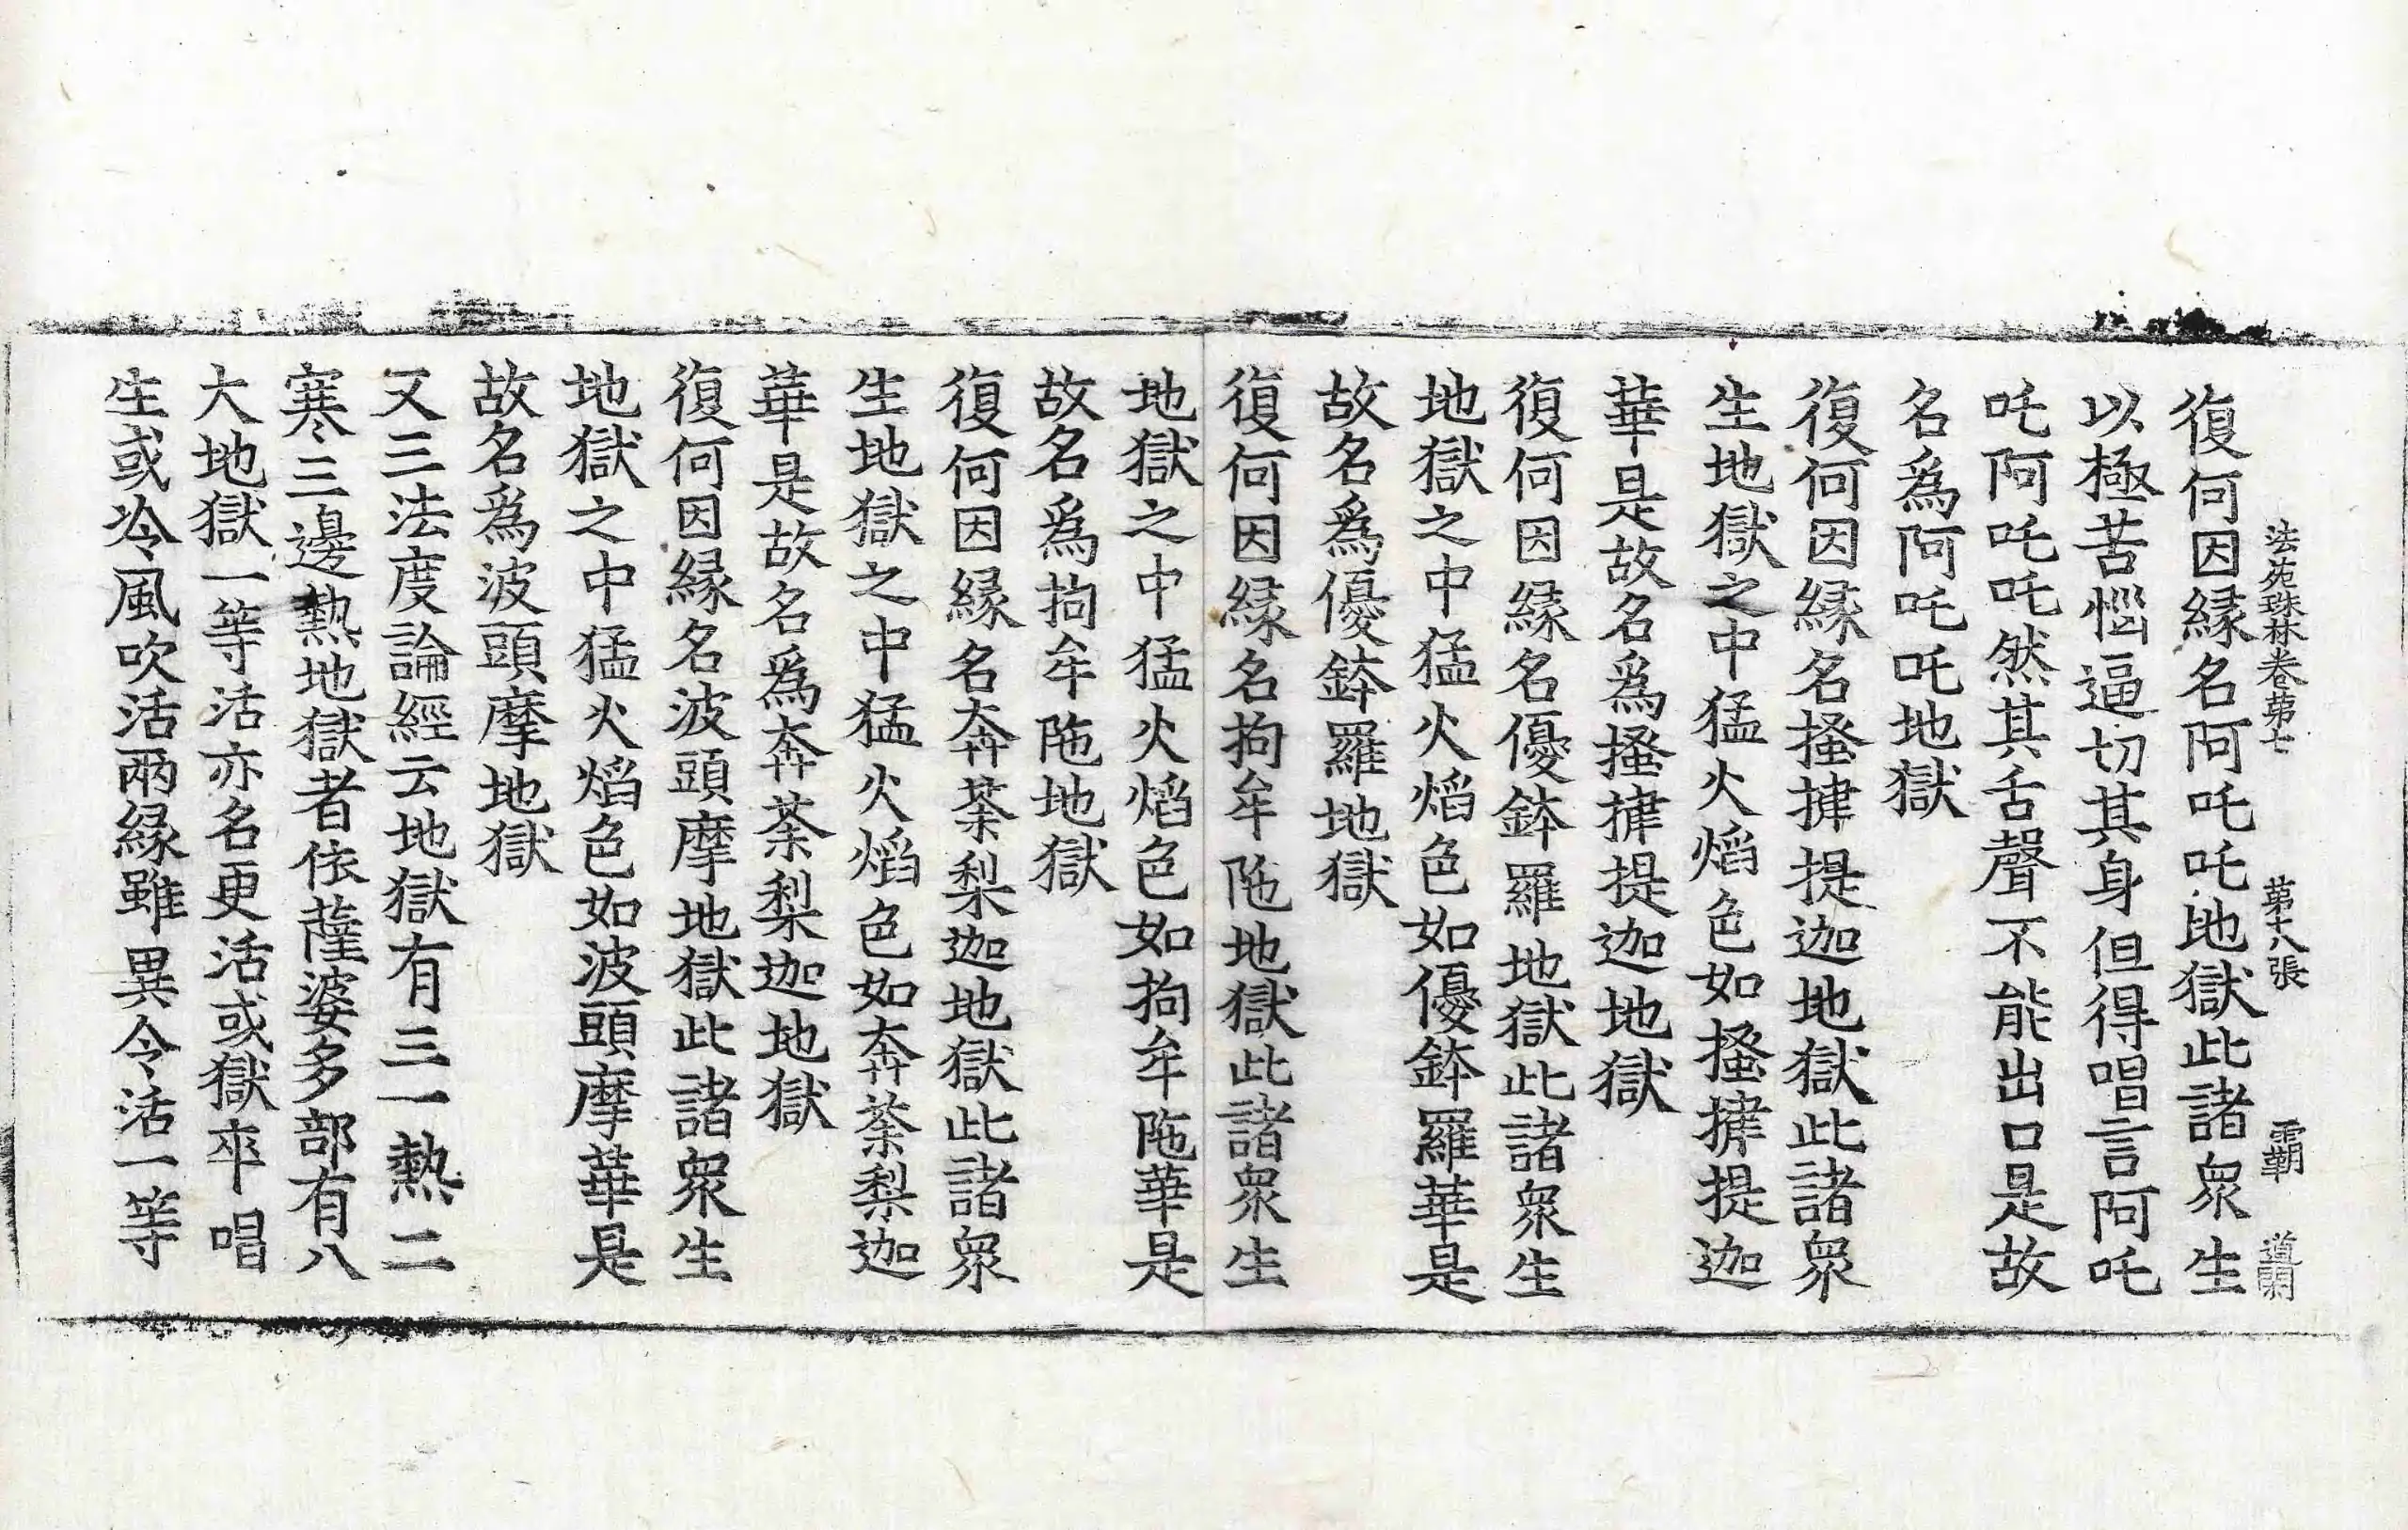 法苑珠林卷第七 第十八張 霸 道開
復何因縁名阿吒吒地獄此諸衆生
以極苦惱逼切其身但得唱言阿吒
吒阿吒吒然其舌聲不能出口是故
名爲阿吒吒地獄
復何因縁名搔揵提迦地獄此諸衆
生地獄之中猛火焰色如搔揵提迦
華是故名爲搔揵提迦地獄
復何因縁名優鉢羅地獄此諸衆生
地獄之中猛火焰色如優鉢羅華是
故名爲優鉢羅地獄
復何因縁名拘牟陁地獄此諸衆生
地獄之中猛火焰色如拘牟陁華是
故名爲拘牟陁地獄
復何因縁名奔荼梨迦地獄此諸衆
生地獄之中猛火焰色如奔荼梨迦
華是故名爲奔荼梨迦地獄
復何因縁名波頭摩地獄此諸衆生
地獄之中猛火焰色如波頭摩華是
故名爲波頭摩地獄
又三法度論經云地獄有三一熱二
寒三邊熱地獄者依薩婆多部有八
大地獄一等活亦名更活或獄卒唱
生或冷風吹活兩縁雖異令活一等